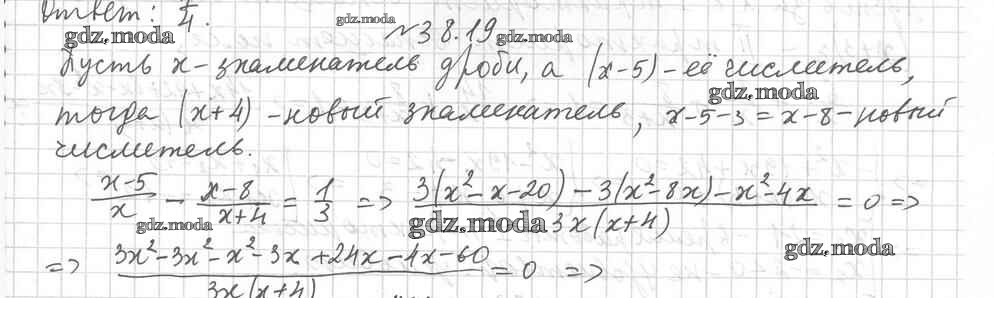 Ответ: 1/4.
gdz.moda gdz.moda №38.19 gdz.moda
Пусть x - знаменатель дроби, а (x-5) - её числитель,
gdz.moda
тогда (x+4) - новый знаменатель, x-5-3 = x-8 - новый
числитель.
(x-5)/x - (x-8)/(x+4) = 1/3 => (3(x²-x-20) - 3(x²-8x) - x²-4x)/(3x(x+4)) = 0 =>
gdz.moda gdz.moda gdz.moda
=> (3x²-3x²-x²-3x+24x-4x-60)/(3x(x+4)) = 0 =>